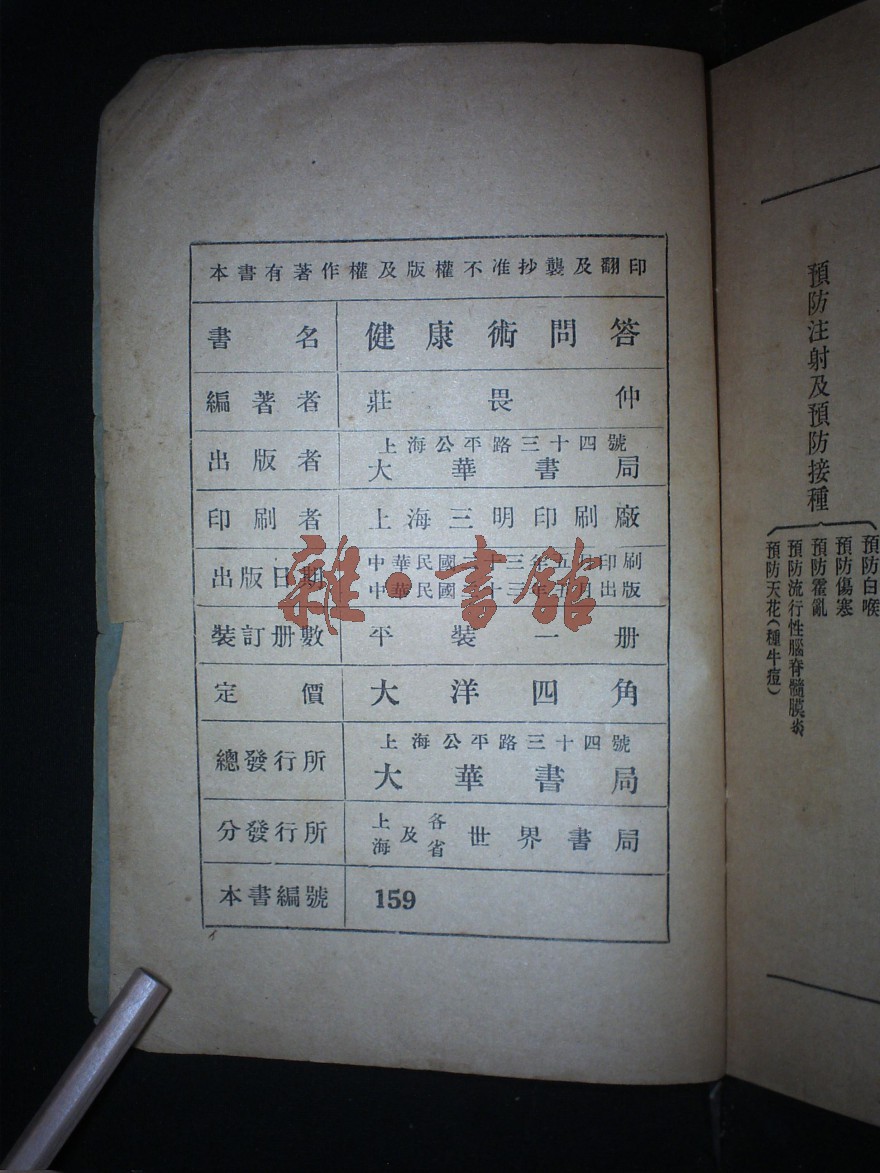 本書有著作權及版權不准抄襲及翻印
書名 健康術問答
編著者 莊畏仲
出版者 上海公平路三十四號
大華書局
印刷者 上海三明印刷廠
出版日期 中華民國二十三年五月印刷
中華民國二十三年五月出版
裝訂册數 平裝一册
定價 大洋四角
總發行所 上海公平路三十四號
大華書局
分發行所 上海及各省世界書局
本書編號 159
雜·書館
預防注射及預防接種
預防白喉
預防傷寒
預防霍亂
預防流行性腦脊髓膜炎
預防天花(種牛痘)